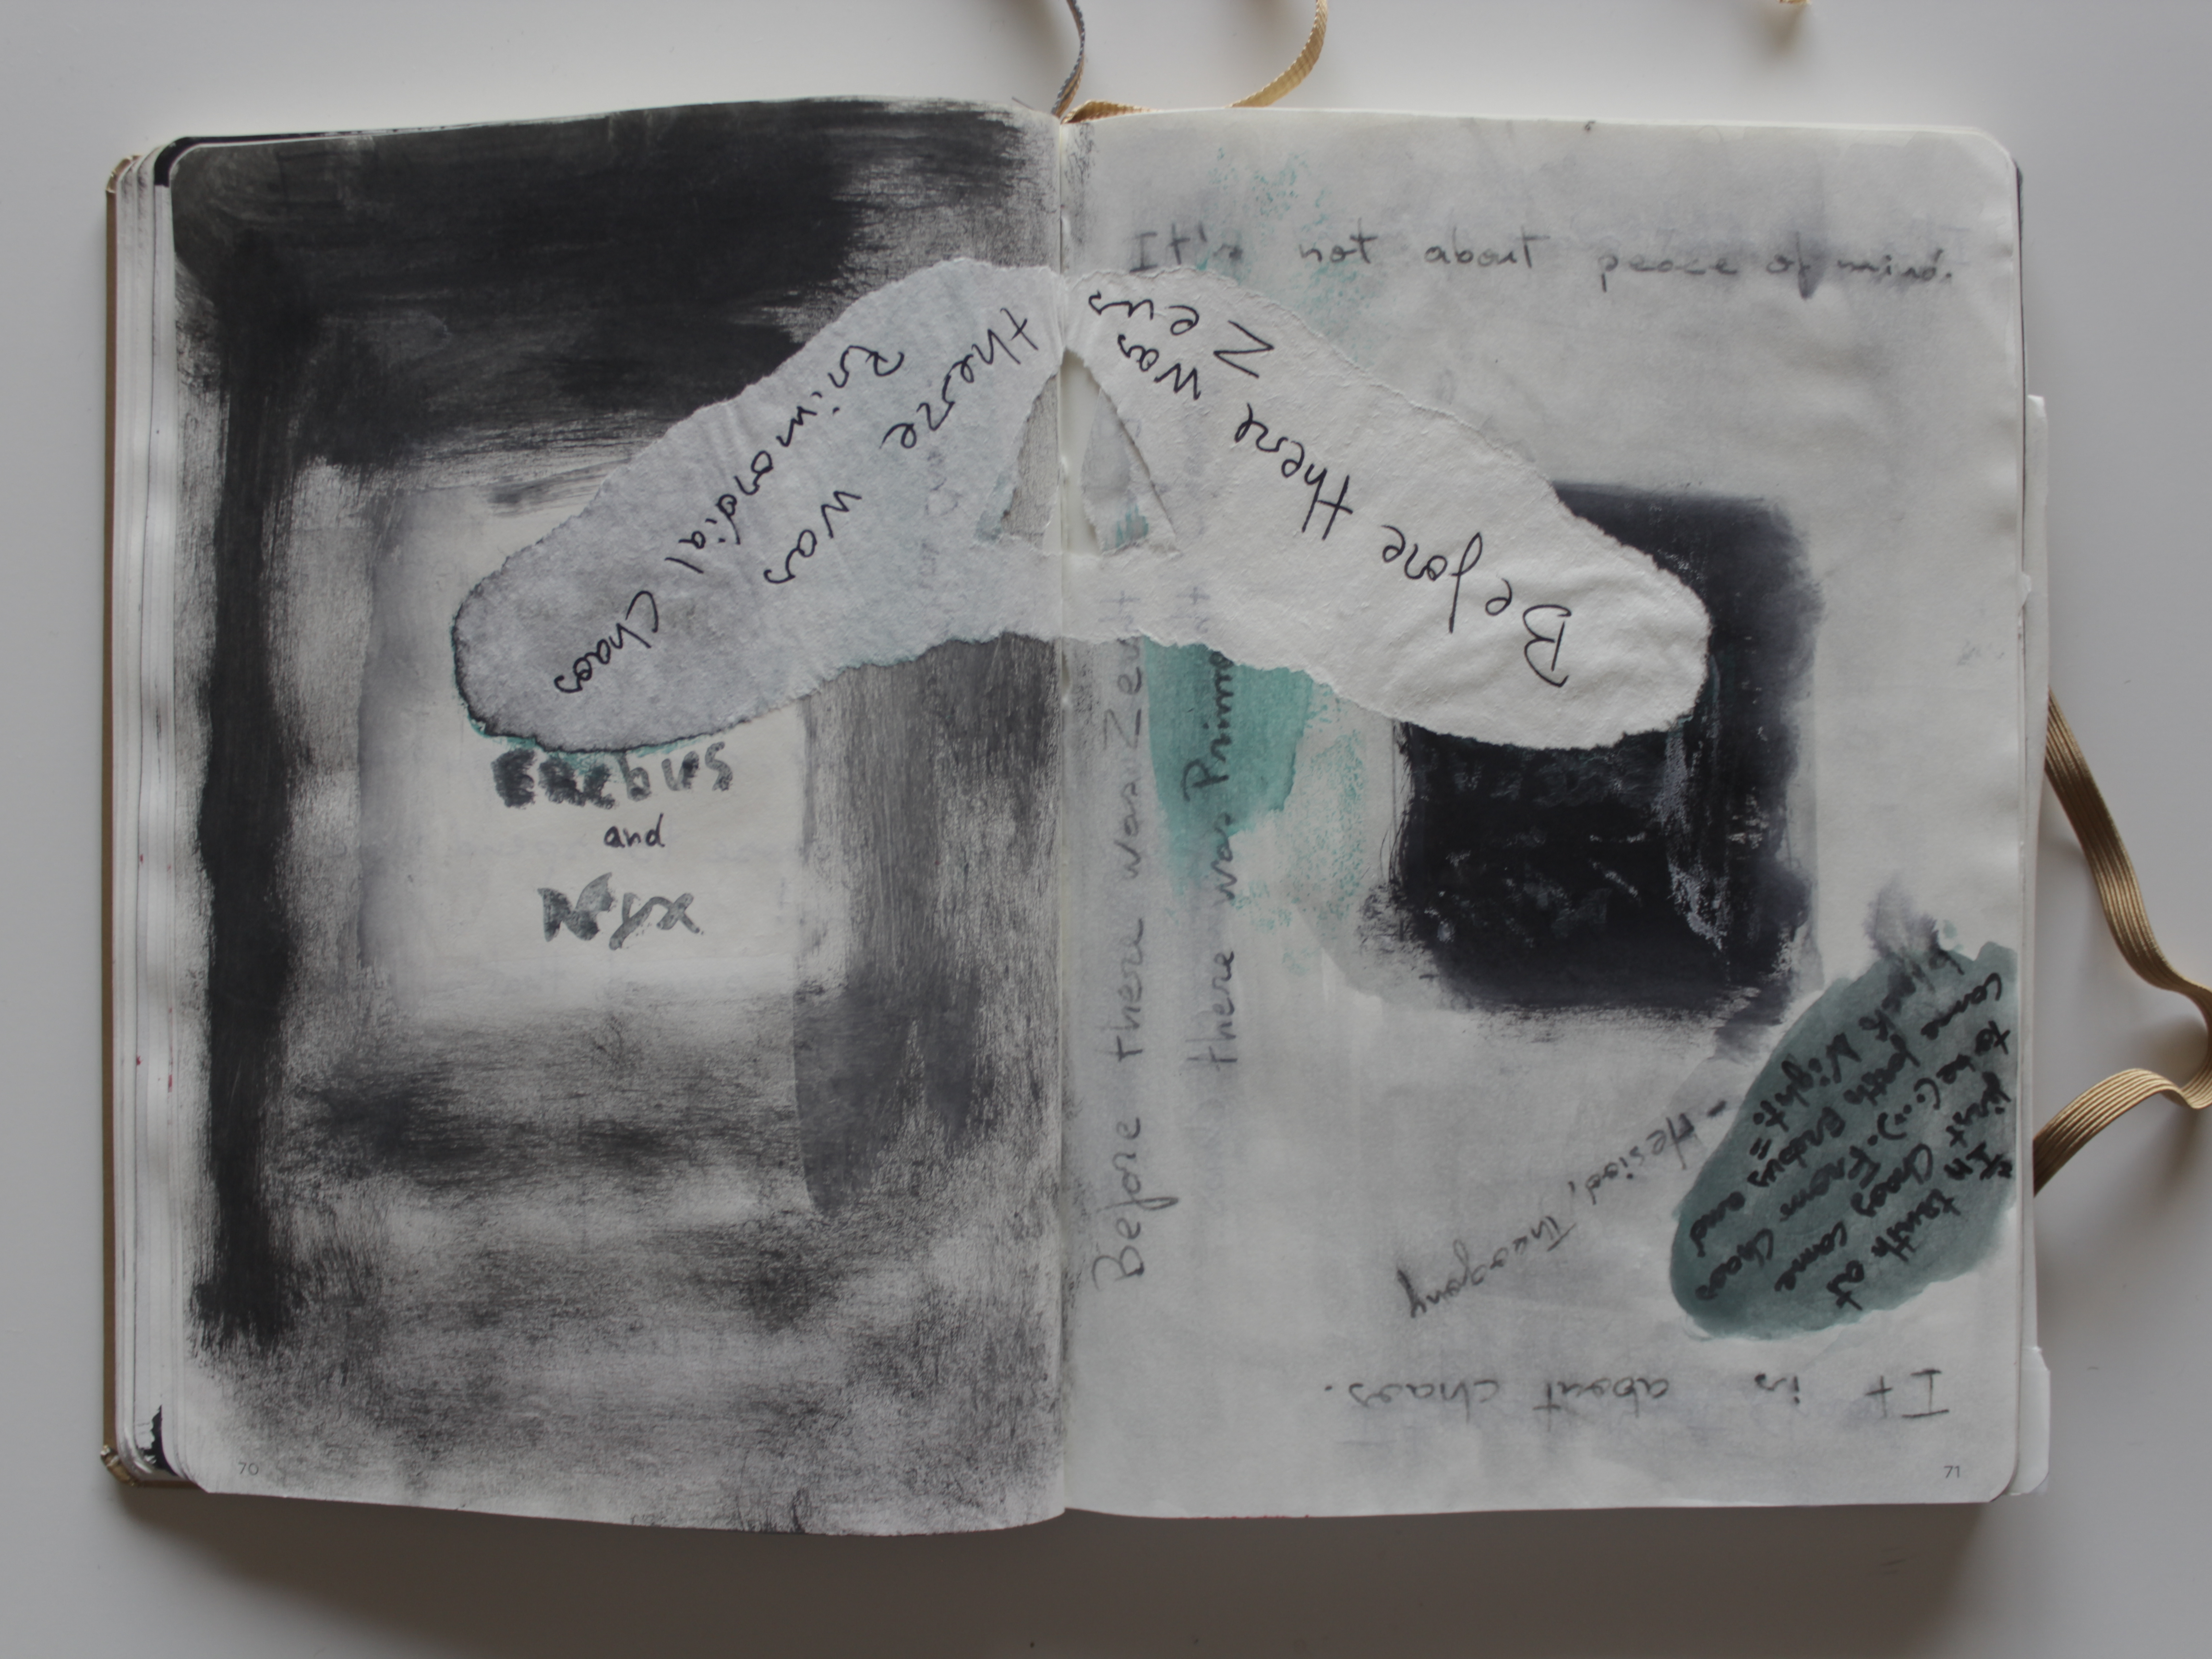 It's not about peace of mind.
Before there was
Zeus
there was
Primordial Chaos
Erebus
and
Nyx
Before there was Zeu
there was Primo
"In truth at
first Chaos came
to be (...). From Chaos
came forth Erebus and
black Night."
- Hesiod, Theogony
It is about chaos.
70
71